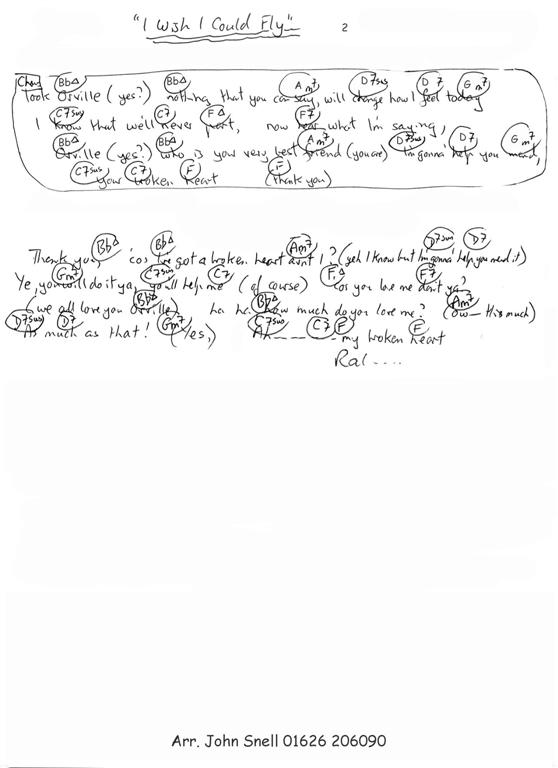 "I Wish I Could Fly" 2
Chorus Bb△ Bb△ Am7 D7sus D7 Gm7
Look Orville (yes?) nothing that you can say, will change how I feel today
C7sus C7 F△ F7
I know that we'll never part, now what I'm saying,
Bb△ Bb△ Am7 D7sus D7 Gm7
Orville (yes?) who is your very best friend (you are) I'm gonna help you mend,
C7sus C7 F F
your broken heart (thank you)
Bb△ Bb△ Am7 D7sus D7
Thank you, 'cos I've got a broken heart aint I? (yeh I know but I'm gonna' help you mend it)
Gm7 C7sus C7 F△ F7
Ye, you will do it ya, you'll help me (of course) 'cos you love me don't ya?
Bb△ Bb△ Am7
(we all love you Orville) ha ha. How much do you love me? (Ow— this much)
D7sus D7 Gm7 C7sus C7 F F
As much as that! (Yes,) Ah_ _ _ _ _ my broken heart
Ral ....
Arr. John Snell 01626 206090